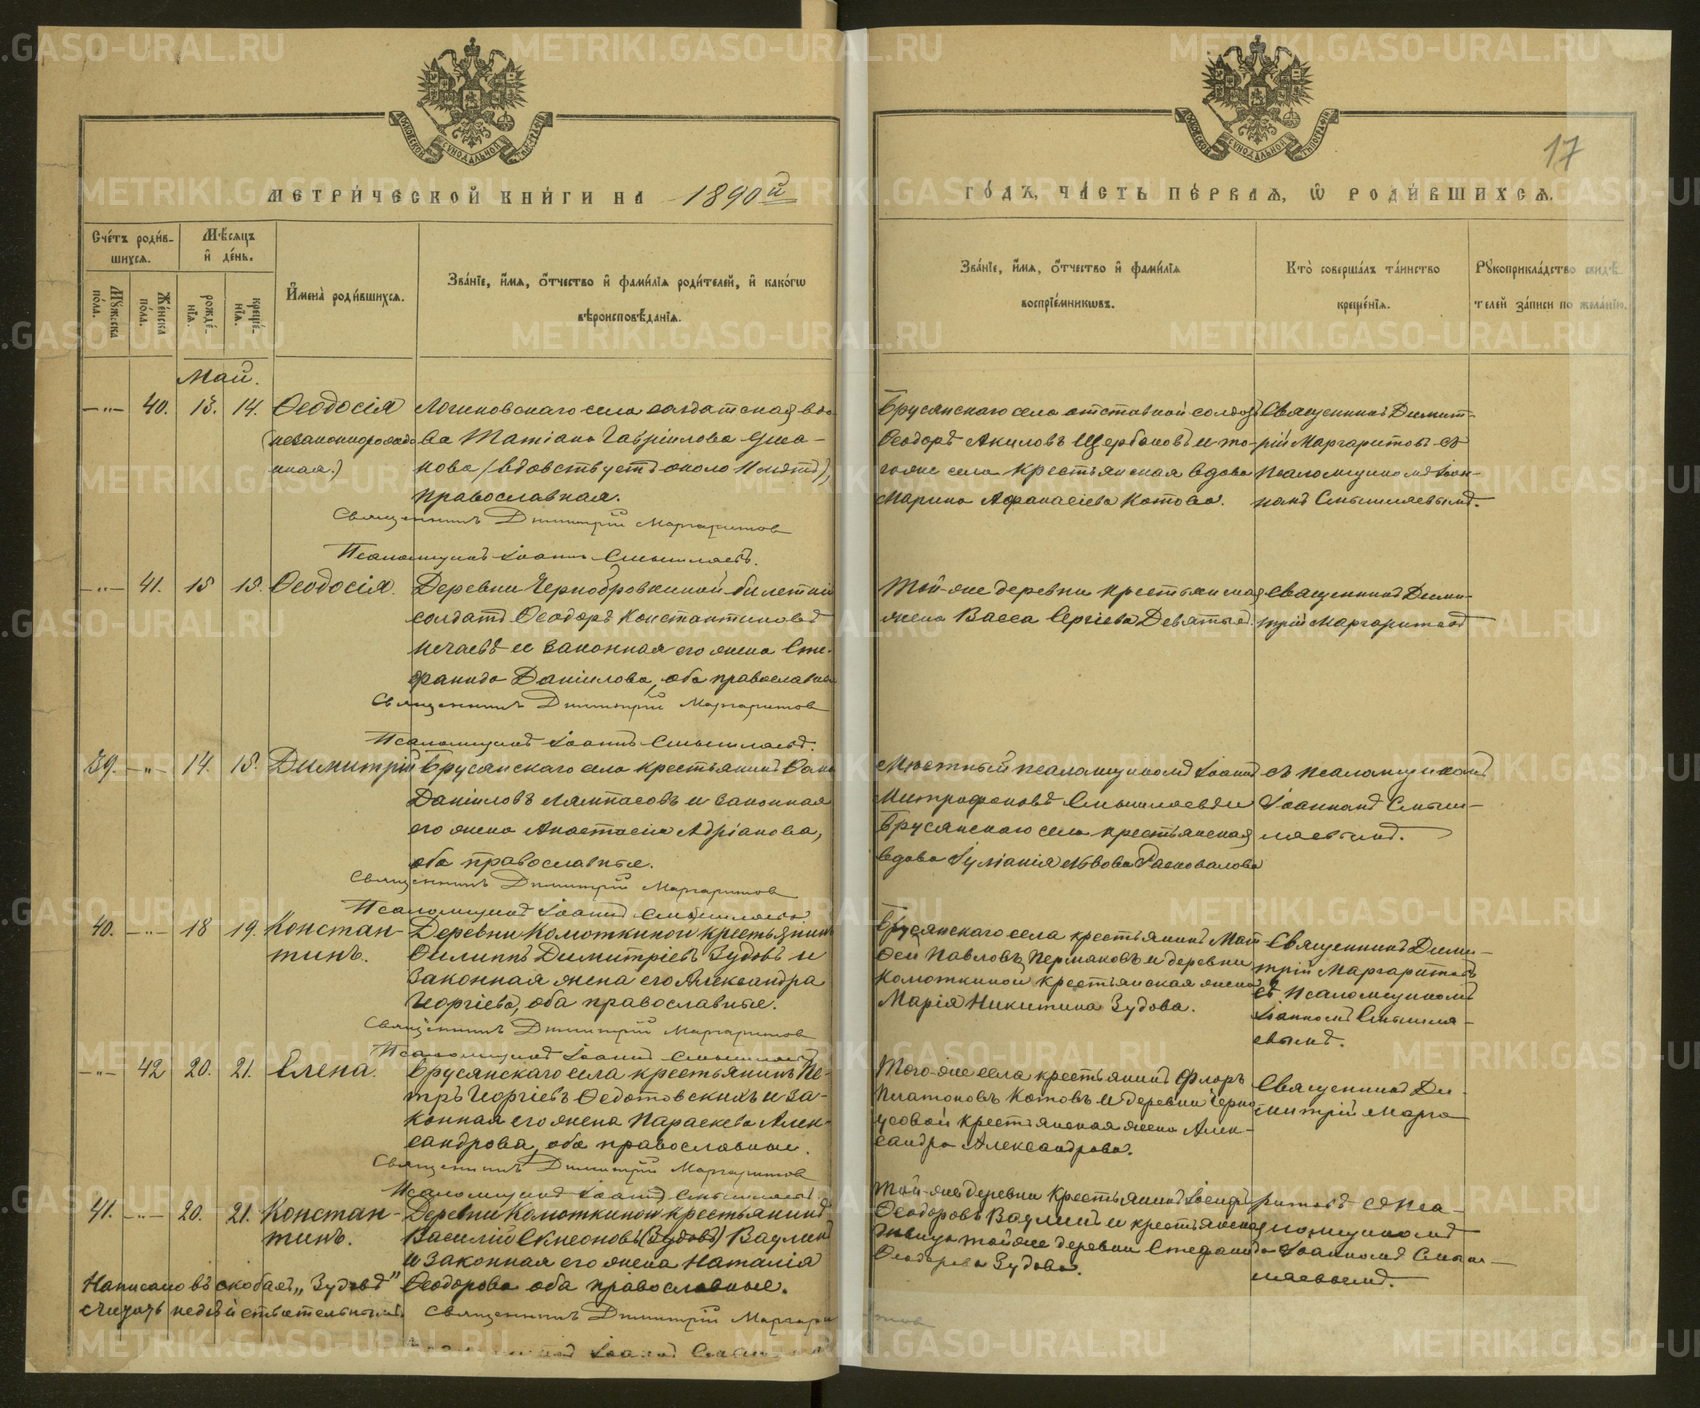 МЕТРИ́ЧЕСКОЙ КНИ́ГИ НА 1890й
ГО́ДЪ, ЧА́СТЬ ПЕ́РВАѦ, Ѽ РОДИ́ВШИХСѦ.
17
Сче́тъ роди́в-
шихсѧ.
Мѣ́сѧцъ
и҆ де́нь.
Му́жеска по́ла.
Же́нска по́ла.
рожде́-
нїѧ.
креще́-
нїѧ.
И҆мена̀ роди́вшихсѧ.
Зва́нїе, и҆́мѧ, ѻ҆́тчество и҆ фами́лїѧ роди́телей, и҆ како́гѡ
вѣроисповѣ́данїѧ.
Зва́нїе, и҆́мѧ, ѻ҆́тчество и҆ фами́лїѧ
воспрїе́мникѡвъ.
Кто̀ соверша́лъ та́инство
креще́нїѧ.
Рꙋкоприкла́дство свидѣ́-
телей за́писи по жела́нїю.
Май.
40. 13. 14. Ѳеодосія
(незаконнорожден-
ная.)
Логиновскаго села солдатская вдо-
ва Татіана Гавріилова
(вдовствуетъ около
православная.
Священникъ Димитрій Маргаритов
Псаломщикъ Іоаннъ Смышляевъ.
Брусянскаго села отставной солдатъ
Ѳеодоръ Акиловъ Щербаковъ и то-
гоже села крестьянская вдова
Марина Афанасіева Котова.
Священникъ Димит-
рій Маргаритовъ съ
псаломщикомъ Іоан-
номъ Смышляевымъ.
41. 15 15. Ѳеодосія.
Деревни Чернобровкиной билетный
солдатъ Ѳеодоръ Константиновъ
Нечаевъ и законная его жена Сте-
фанида Даніилова, оба православные
Священникъ Димитрій Маргаритов
Псаломщикъ Іоаннъ Смышляевъ.
Той-же деревни крестьянская
жена Васса Сергіева Девятыхъ.
Священникъ Дими-
трій Маргаритовъ
39. 14. 15. Димитрій
Брусянскаго села крестьянинъ
Даніиловъ Лямпасовъ и законная
его жена Анастасія Адріанова,
оба православные.
Священникъ Димитрій Маргаритов
Псаломщикъ Іоаннъ Смышляевъ
Мѣстный псаломщикъ Іоаннъ
Митрофановъ Смышляевъ и
Брусянскаго села крестьянская
вдова Іуліанія Львова Расковалова
съ псаломщикомъ
Іоанномъ Смыш-
ляевымъ.
40. 18 19. Констан-
тинъ.
Деревни Колоткиной крестьянинъ
Филиппъ Димитріевъ Зудовъ и
законная жена его Александра
Георгіева, оба православные.
Священникъ Димитрій Маргаритов
Псаломщикъ Іоаннъ Смышляевъ
Брусянскаго села крестьянинъ Мат-
ѳеи Павловъ Пермяковъ и деревни
Колоткиной крестьянская жена
Марія Никитина Зудова.
Священникъ Дими-
трій Маргаритовъ
съ псаломщикомъ
Іоанномъ Смышля-
евымъ.
42 20. 21. Елена.
Брусянскаго села крестьянинъ Пе-
тръ Георгіевъ Ѳедотовскихъ и за-
конная его жена Параскева Алек-
сандрова, оба православные.
Священникъ Димитрій Маргаритов
Псаломщикъ Іоаннъ Смышляевъ
Того-же села крестьянинъ Флоръ
Платоновъ Котовъ и деревни Черно-
усовой крестьянская жена Алек-
сандра Александрова.
Священникъ Ди-
митрій Марга-
41. 20. 21. Констан-
тинъ.
Деревни Колоткиной крестьянинъ
Василій (Зудовъ) Ваулинъ
и законная его жена Наталія
Ѳеодорова оба православные.
Священникъ Димитрій Маргаритов
Написано въ скобахъ „Зудовъ"
считать недействительнымъ
Той-же деревни крестьянинъ Іосифъ
Ѳеодоровъ Ваулинъ и крестьянская
дѣвица тойже деревни Стефанида
Ѳеодорова Зудова.
ритовъ съ пса-
ломщикомъ
Іоанномъ Смыш-
ляевымъ.
METRIKI.GASO-URAL.RU